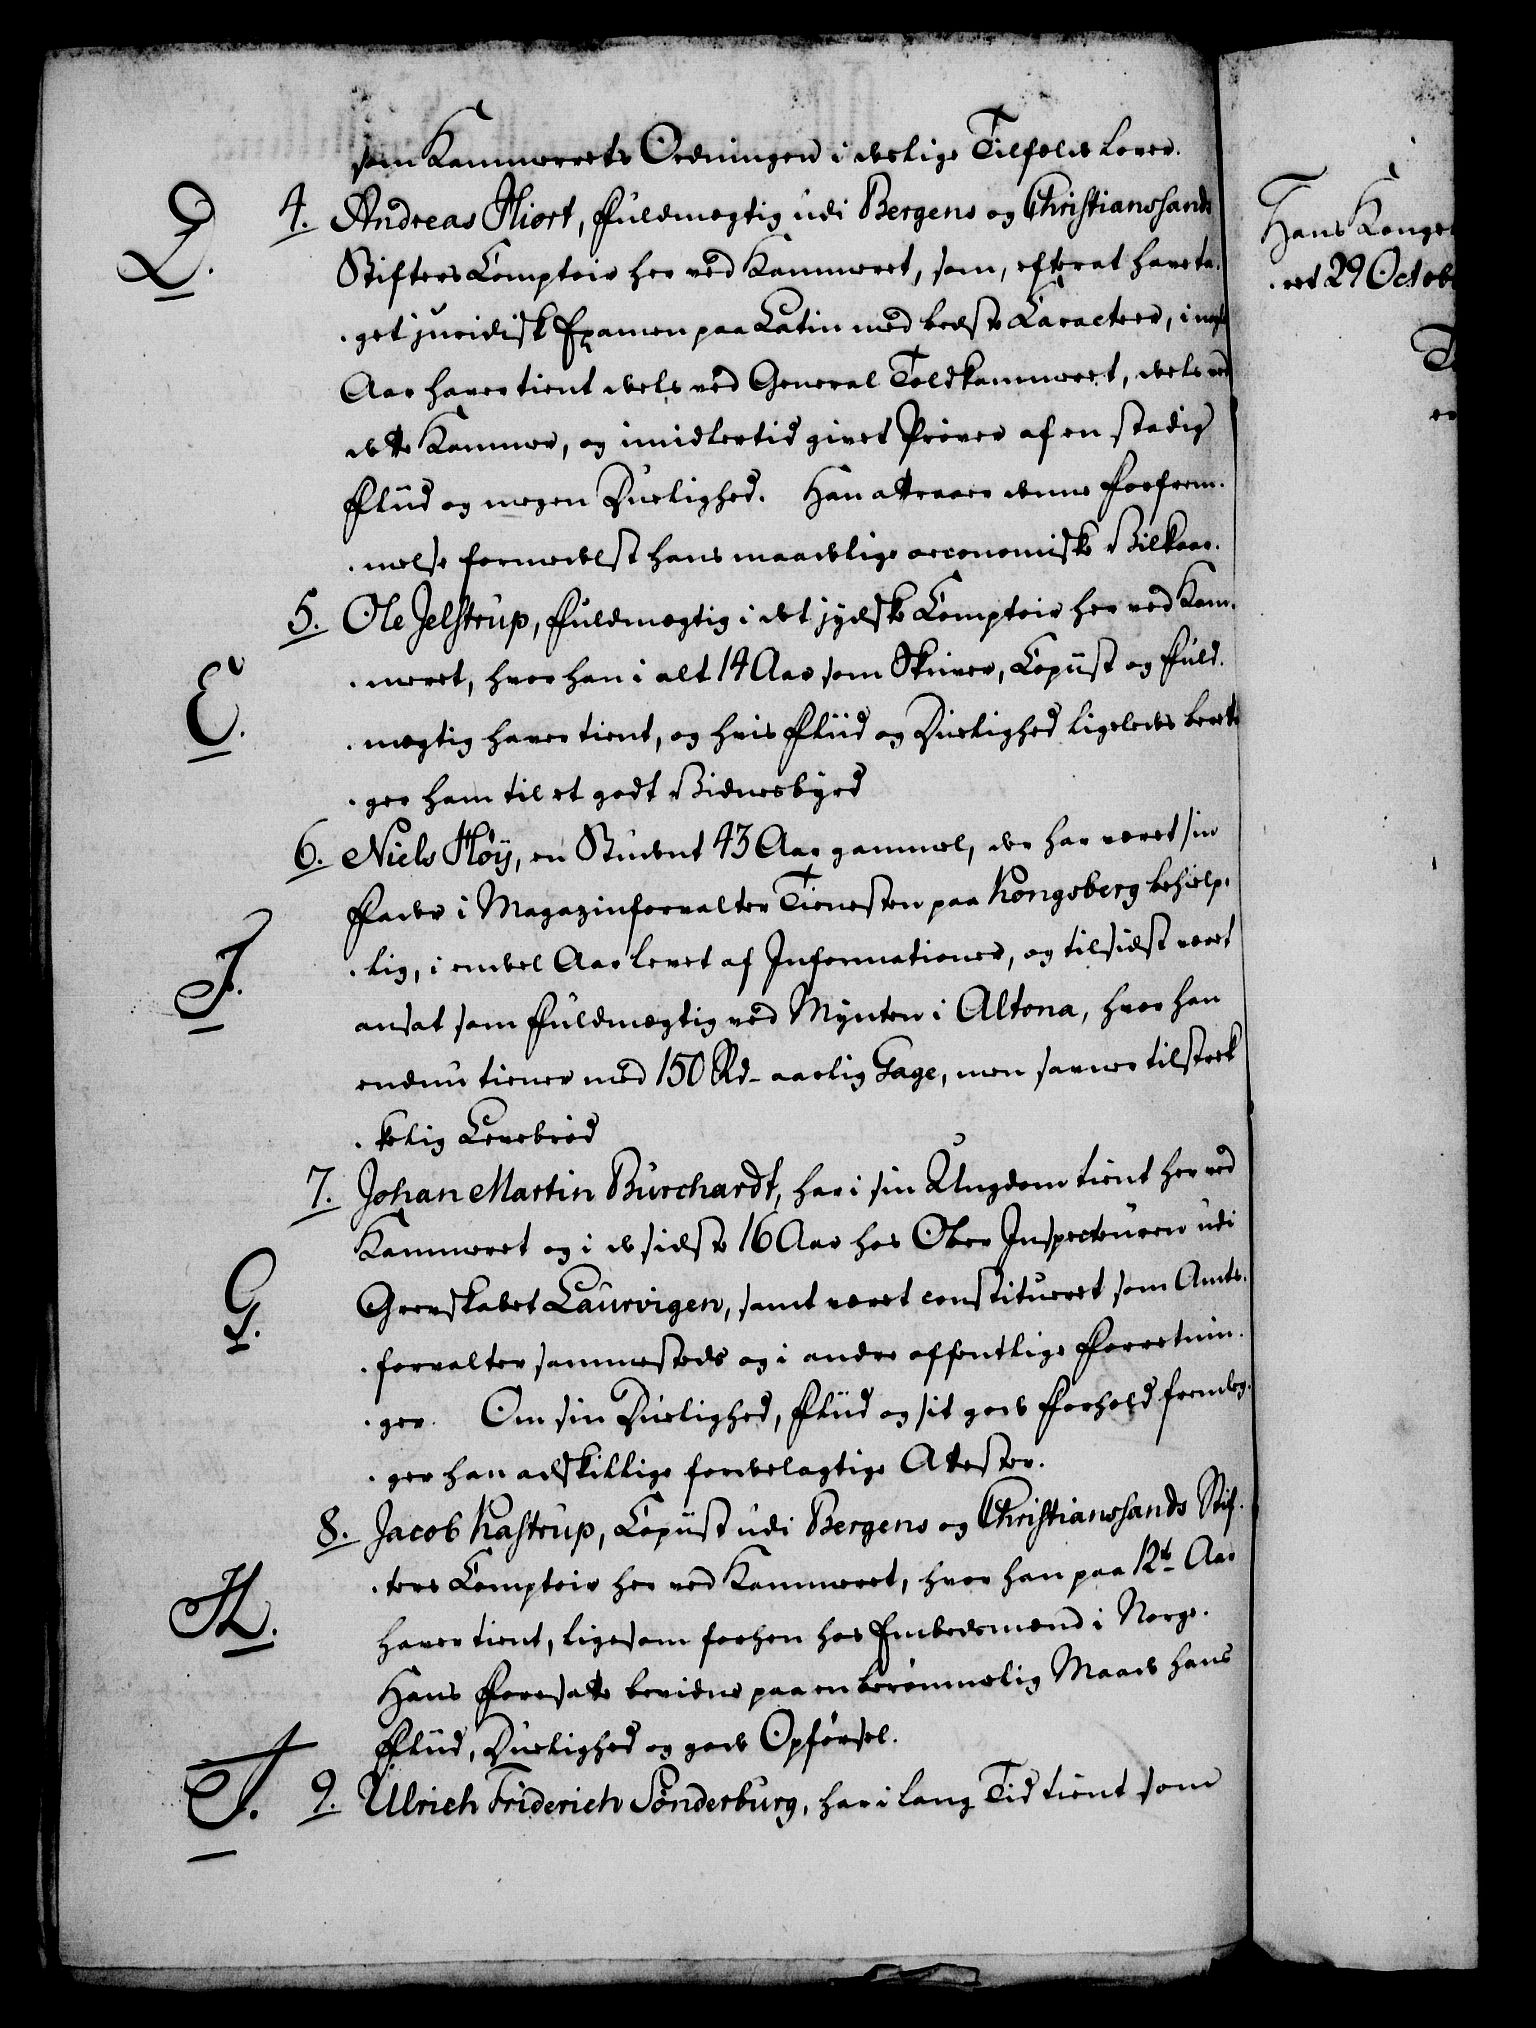 som Kammerets Ordningen i deslige Tilfælde lover.
D. 4. Andreas Hiort, Fuldmægtig udi Bergens og Christianssands
Stifters Comptoir her ved Kammeret, som, efterat have ta-
-get juridisk Examen paa Latin med bedste Caracteer, i nogle
Aar haver tient deels ved General Toldkammeret, deels ved
dette Kammer, og imidlertid givet Prøver af en stadig
Fliid og megen Duelighed. Han attraaer denne Forfrem-
-melse formedelst hans maadelige oeconomiske Vilkaar.
E. 5. Ole Jelstrup, Fuldmægtig i det jydske Comptoir her ved Kam-
-meret, hvor han i alt 14 Aar som Skriver, Copiist og Fuld-
-mægtig haver tient, og hvis Fliid og Duelighed ligeledes
-ger ham til et godt Vidnesbyrd
F. 6. Niels Høÿ, en Student 43 Aar gammel, der har været sin
Fader i Magazinforvalter Tienesten paa Kongsberg behielp-
-lig, i endeel Aar levet af Informationer, og tilsidst været
ansat som Fuldmægtig ved Mynten i Altona, hvor han
endnu tiener med 150 Rd- aarlig Gage, men savner tilstræk
-kelig Levebrød
G. 7. Johan Martin Burchardt, har i sin Ungdom tient her ved
Kammeret og i de sidste 16 Aar hos Ober Inspecteuren udi
Grevskabet Laurvigen, samt været constitueret som Amts-
-forvalter sammesteds og i andre offentlige Forretnin-
-ger. Om sin Duelighed, Fliid og sit gode Forhold fremleg-
-ger han adskillige fordeelagtige Attester.
H. 8. Jacob Kastrup, Copiist udi Bergens og Christianssands Stif-
-ters Comptoir her ved Kammeret, hvor han paa 12te Aar
haver tient, ligesom forhen hos Embedsmænd i Norge.
Hans Foresatte bevidne paa en berømmelig Maade hans
Fliid, Duelighed og gode Opførsel.
I. 9. Ulrich Friderich Sønderburg, har i lang Tid tient som
Hans Konge
29 Octob